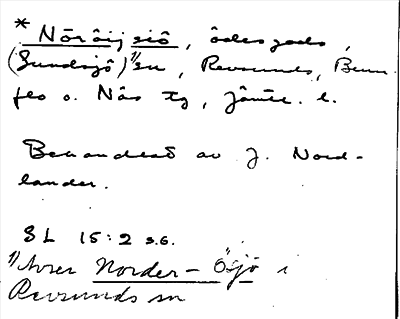 * Nöräij siö, ödesgods,
(Sundsjö)¹⁾ sn, Revsunds, Brun-
flo o. Näs tg, Jämtl. l.
Behandlat av J. Nord-
lander.
SL 15:2 s.6.
¹⁾ Avser Norder-Ösjö i
Revsunds sn